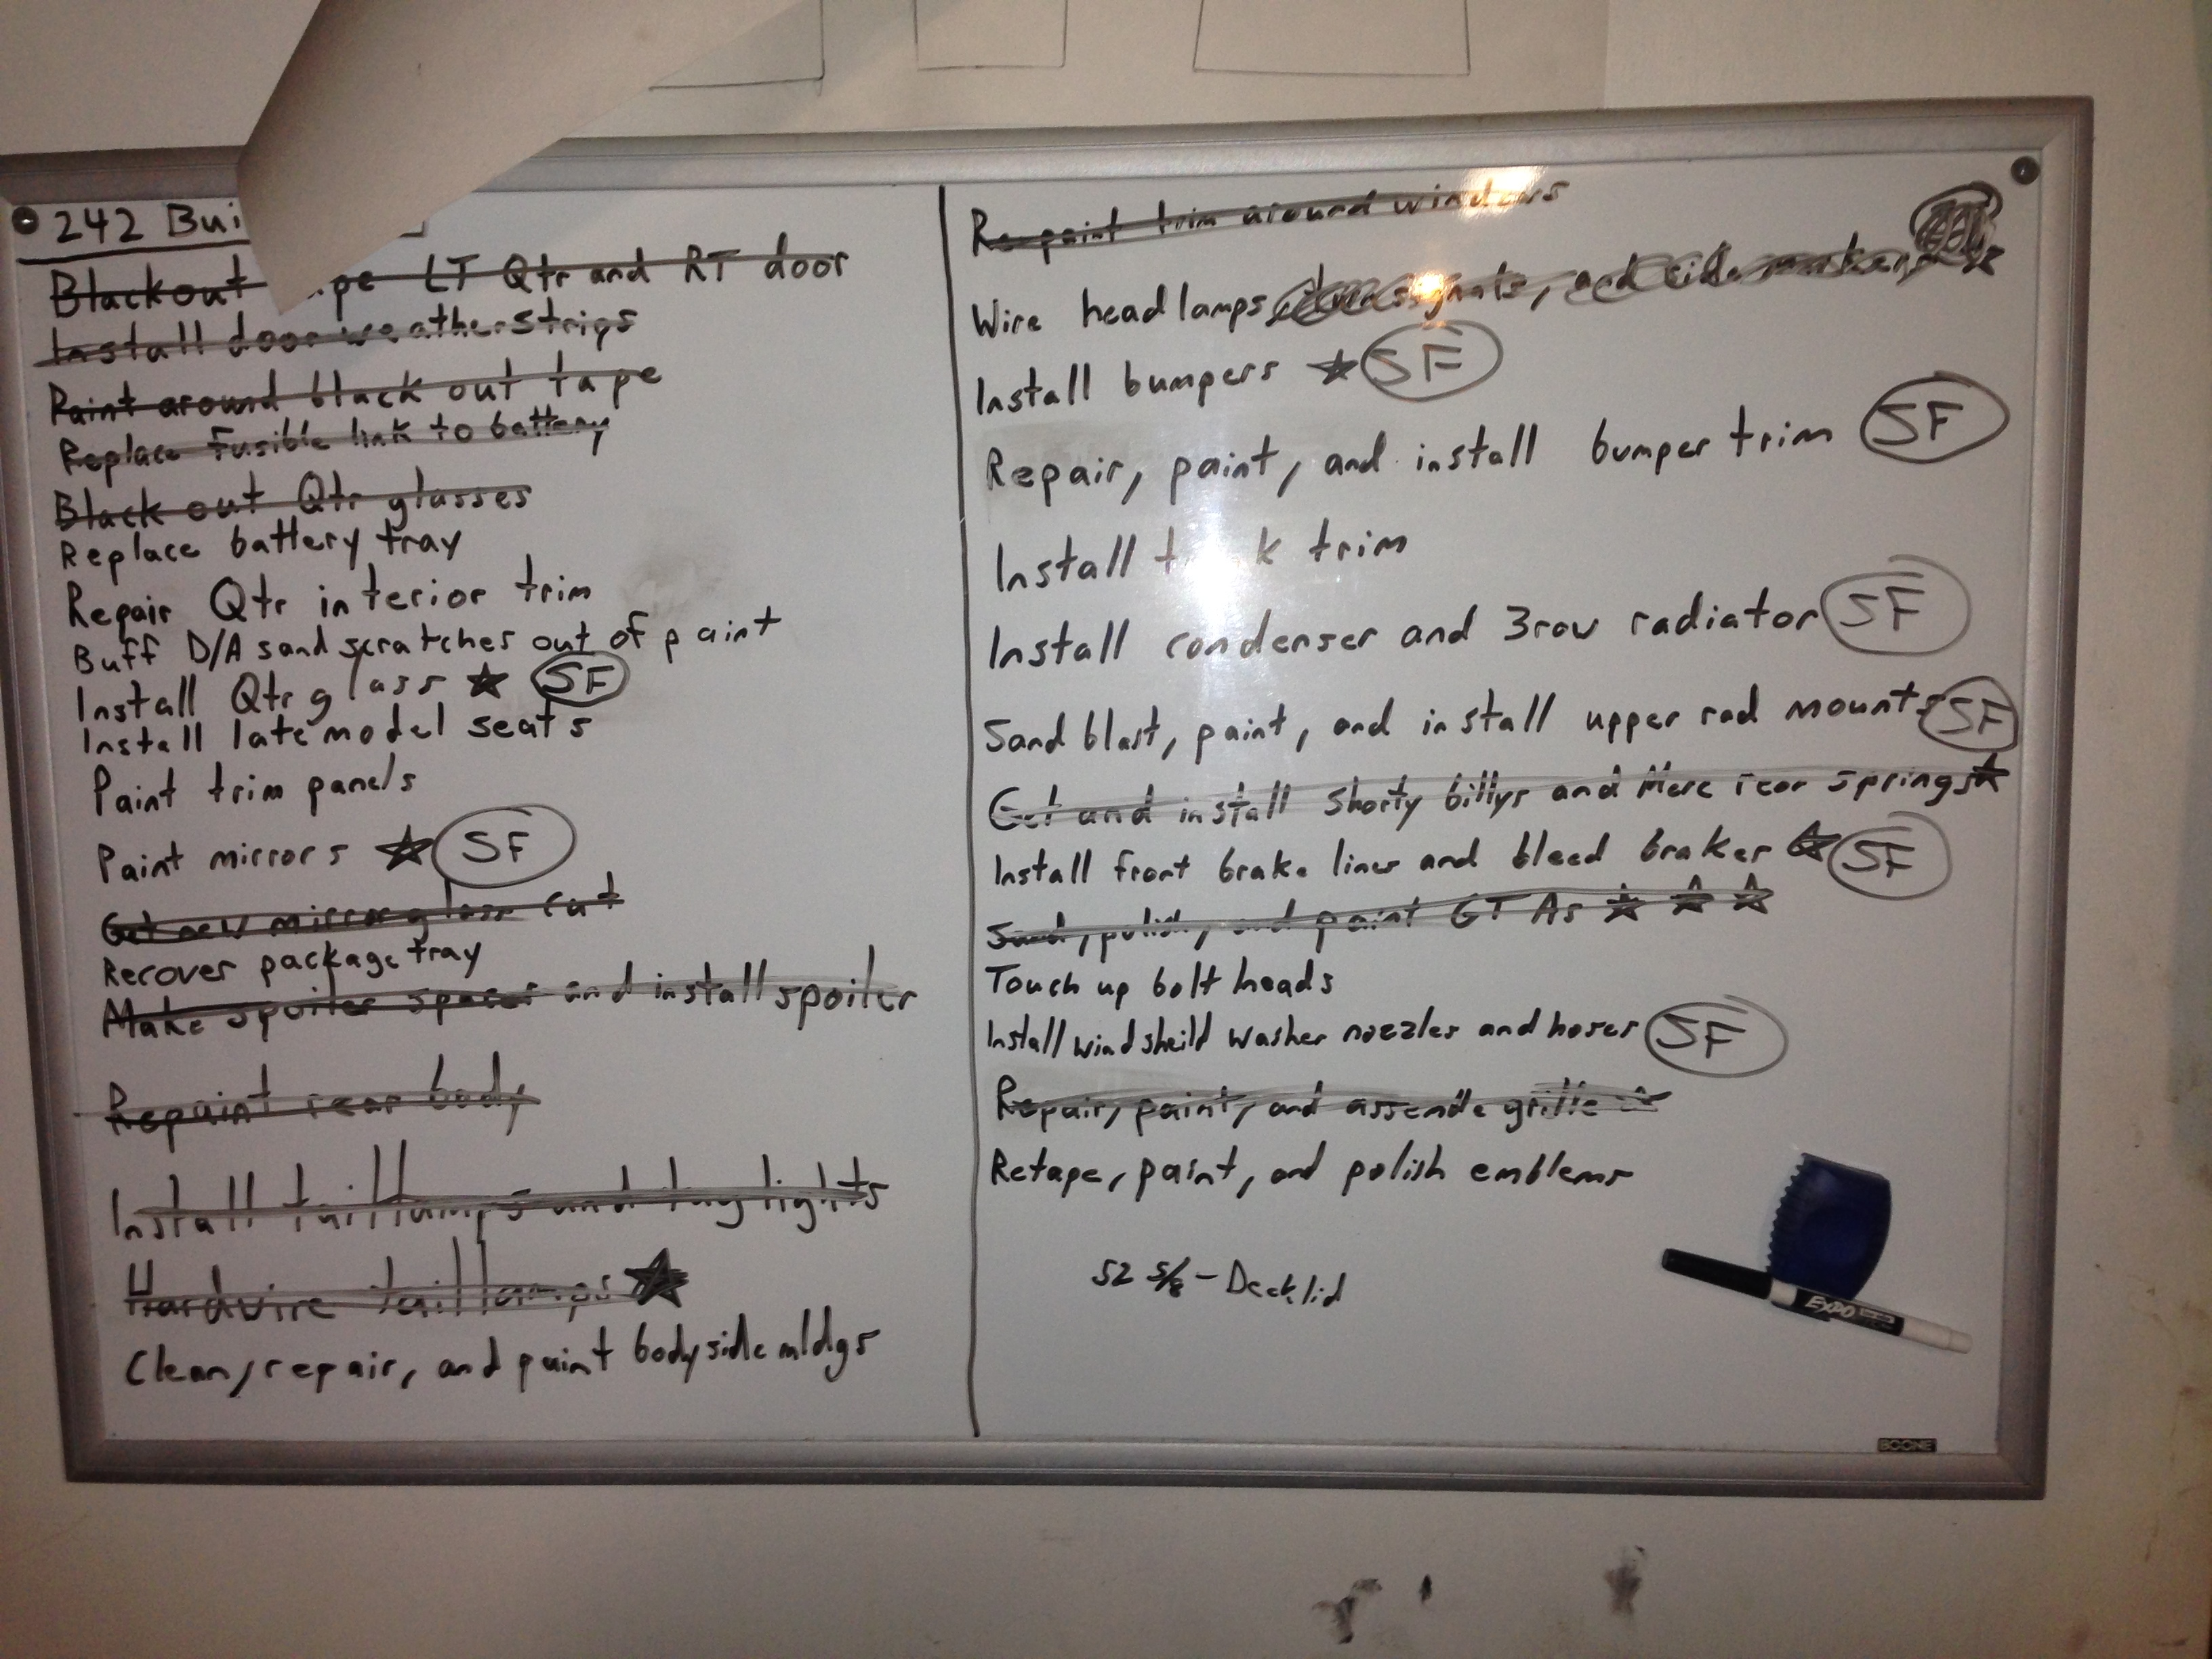 242 Bui
Blackout LT Qtr and RT door
Install door weatherstrips
Paint around black out tape
Replace Fusible link to battery
Black out Qtr glasses
Replace battery tray
Repair Qtr interior trim
Buff D/A sand scratches out of paint
Install Qtr glass ★ SF
Install late model seats
Paint trim panels
Paint mirrors ★ SF
Get new mirror glass cut
Recover package tray
Make spoiler spacer and install spoiler
Repaint rear body
Install taillamps and tag lights
Hardwire taillamps ★
Clean, repair, and paint bodyside mldgs
Repaint trim around windows
Wire headlamps, turn signals, and side markers ★
Install bumpers ★ SF
Repair, paint, and install bumper trim SF
Install trim
Install condenser and 3row radiator SF
Sand blast, paint, and install upper rad mounts SF
Get and install Shorty billys and Merc rear springs ★
Install front brake lines and bleed brakes ★ SF
Sand, polish, and paint GTAs ★ ★ ★
Touch up bolt heads
Install windsheild washer nozzles and hoses SF
Repair, paint, and assemble grille ★
Retape, paint, and polish emblems
52 5/8 - Decklid
EXPO
BOONE